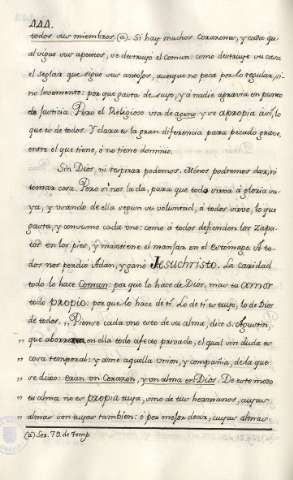 todos sus miembros. (a). Si hay muchos Corazones, y cada qual
sigue sus apetitos, se destruye el Comun: como destruye su casa
el seglar que sigue sus antojos, aunque no peca por lo regular, si
no levemente: por que gasta de suyo, y á nadie agravia en punto
de Justicia. Pero el Religioso usa de ageno y se apropia así, lo
que es de todos. Y daxa es la gran diferencia para pecado grave
entre el que tiene, ó no tiene dominio.
Sin Dios, ni respirar podemos. Menos podremos dar, ni
tomar cosa. Pero si nos la da, para que todo sirva á gloria su
ya, y usando de ella segun su voluntad, á todos sirve, lo que
gasta, y consume cada uno: como á todos defienden los Zapa
tos en los pies, y mantiene el manjar en el estomago. A to
dos nos perdió Adan, y ganó Jesuchristo. La caridad
todo lo hace Comun: por que lo hace de Dios, mas tu amor
todo propio: por que lo hace de ti. Lo de ti es tuyo, lo de Dios
de todos. Piense cada uno esto de su alma, dice S. Agustin,
que aborrezca en ella todo afecto privado, el qual sin duda es
cosa temporal: y ame aquella union, y compañia, de la que
se dixo: eran un Corazon, y un alma en Dios. De este modo
tu alma no es propia tuya, sino de tus hermanos, cuyas
almas son tuyas tambien: ó por mejor decir, cuyas almas
(a) Ser. 79. de Temp.